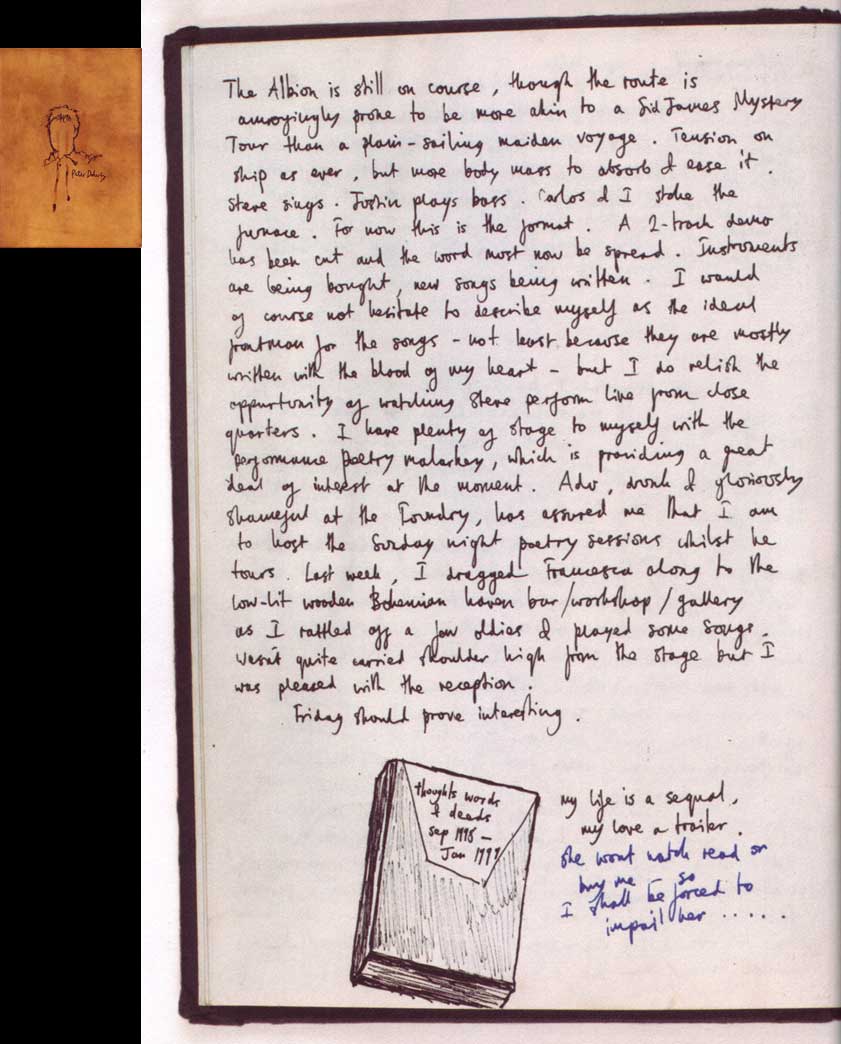 Peter Doherty
The Albion is still on course, though the route is
annoyingly prone to be more akin to a Sid James Mystery
Tour than a plain-sailing maiden voyage. Tension on
ship as ever, but more body mass to absorb & ease it.
Steve sings. Justin plays bass. Carlos & I stoke the
furnace. For now this is the format. A 2-track demo
has been cut and the word must now be spread. Instruments
are being bought, new songs being written. I would
of course not hesitate to describe myself as the ideal
frontman for the songs - not least because they are mostly
written with the blood of my heart - but I do relish the
oppurtunity of watching Steve perform live from close
quarters. I have plenty of stage to myself with the
performance poetry malarkey, which is providing a great
deal of interest at the moment. Adv, drunk & gloriously
shameful at the Foundry, has assured me that I am
to host the Sunday night poetry sessions whilst he
tours. Last week, I dragged Francesca along to the
low-lit wooden Bohemian haven bar/workshop/gallery
as I rattled off a few oldies & played some songs.
Wasn't quite carried shoulder high from the stage but I
was pleased with the reception.
Friday should prove interesting.
thoughts words
& deeds
sep 1998 -
Jan 1999
my life is a sequal,
my love a trailer.
She wont watch read or
buy me - so
I shall be forced to
impail her .....